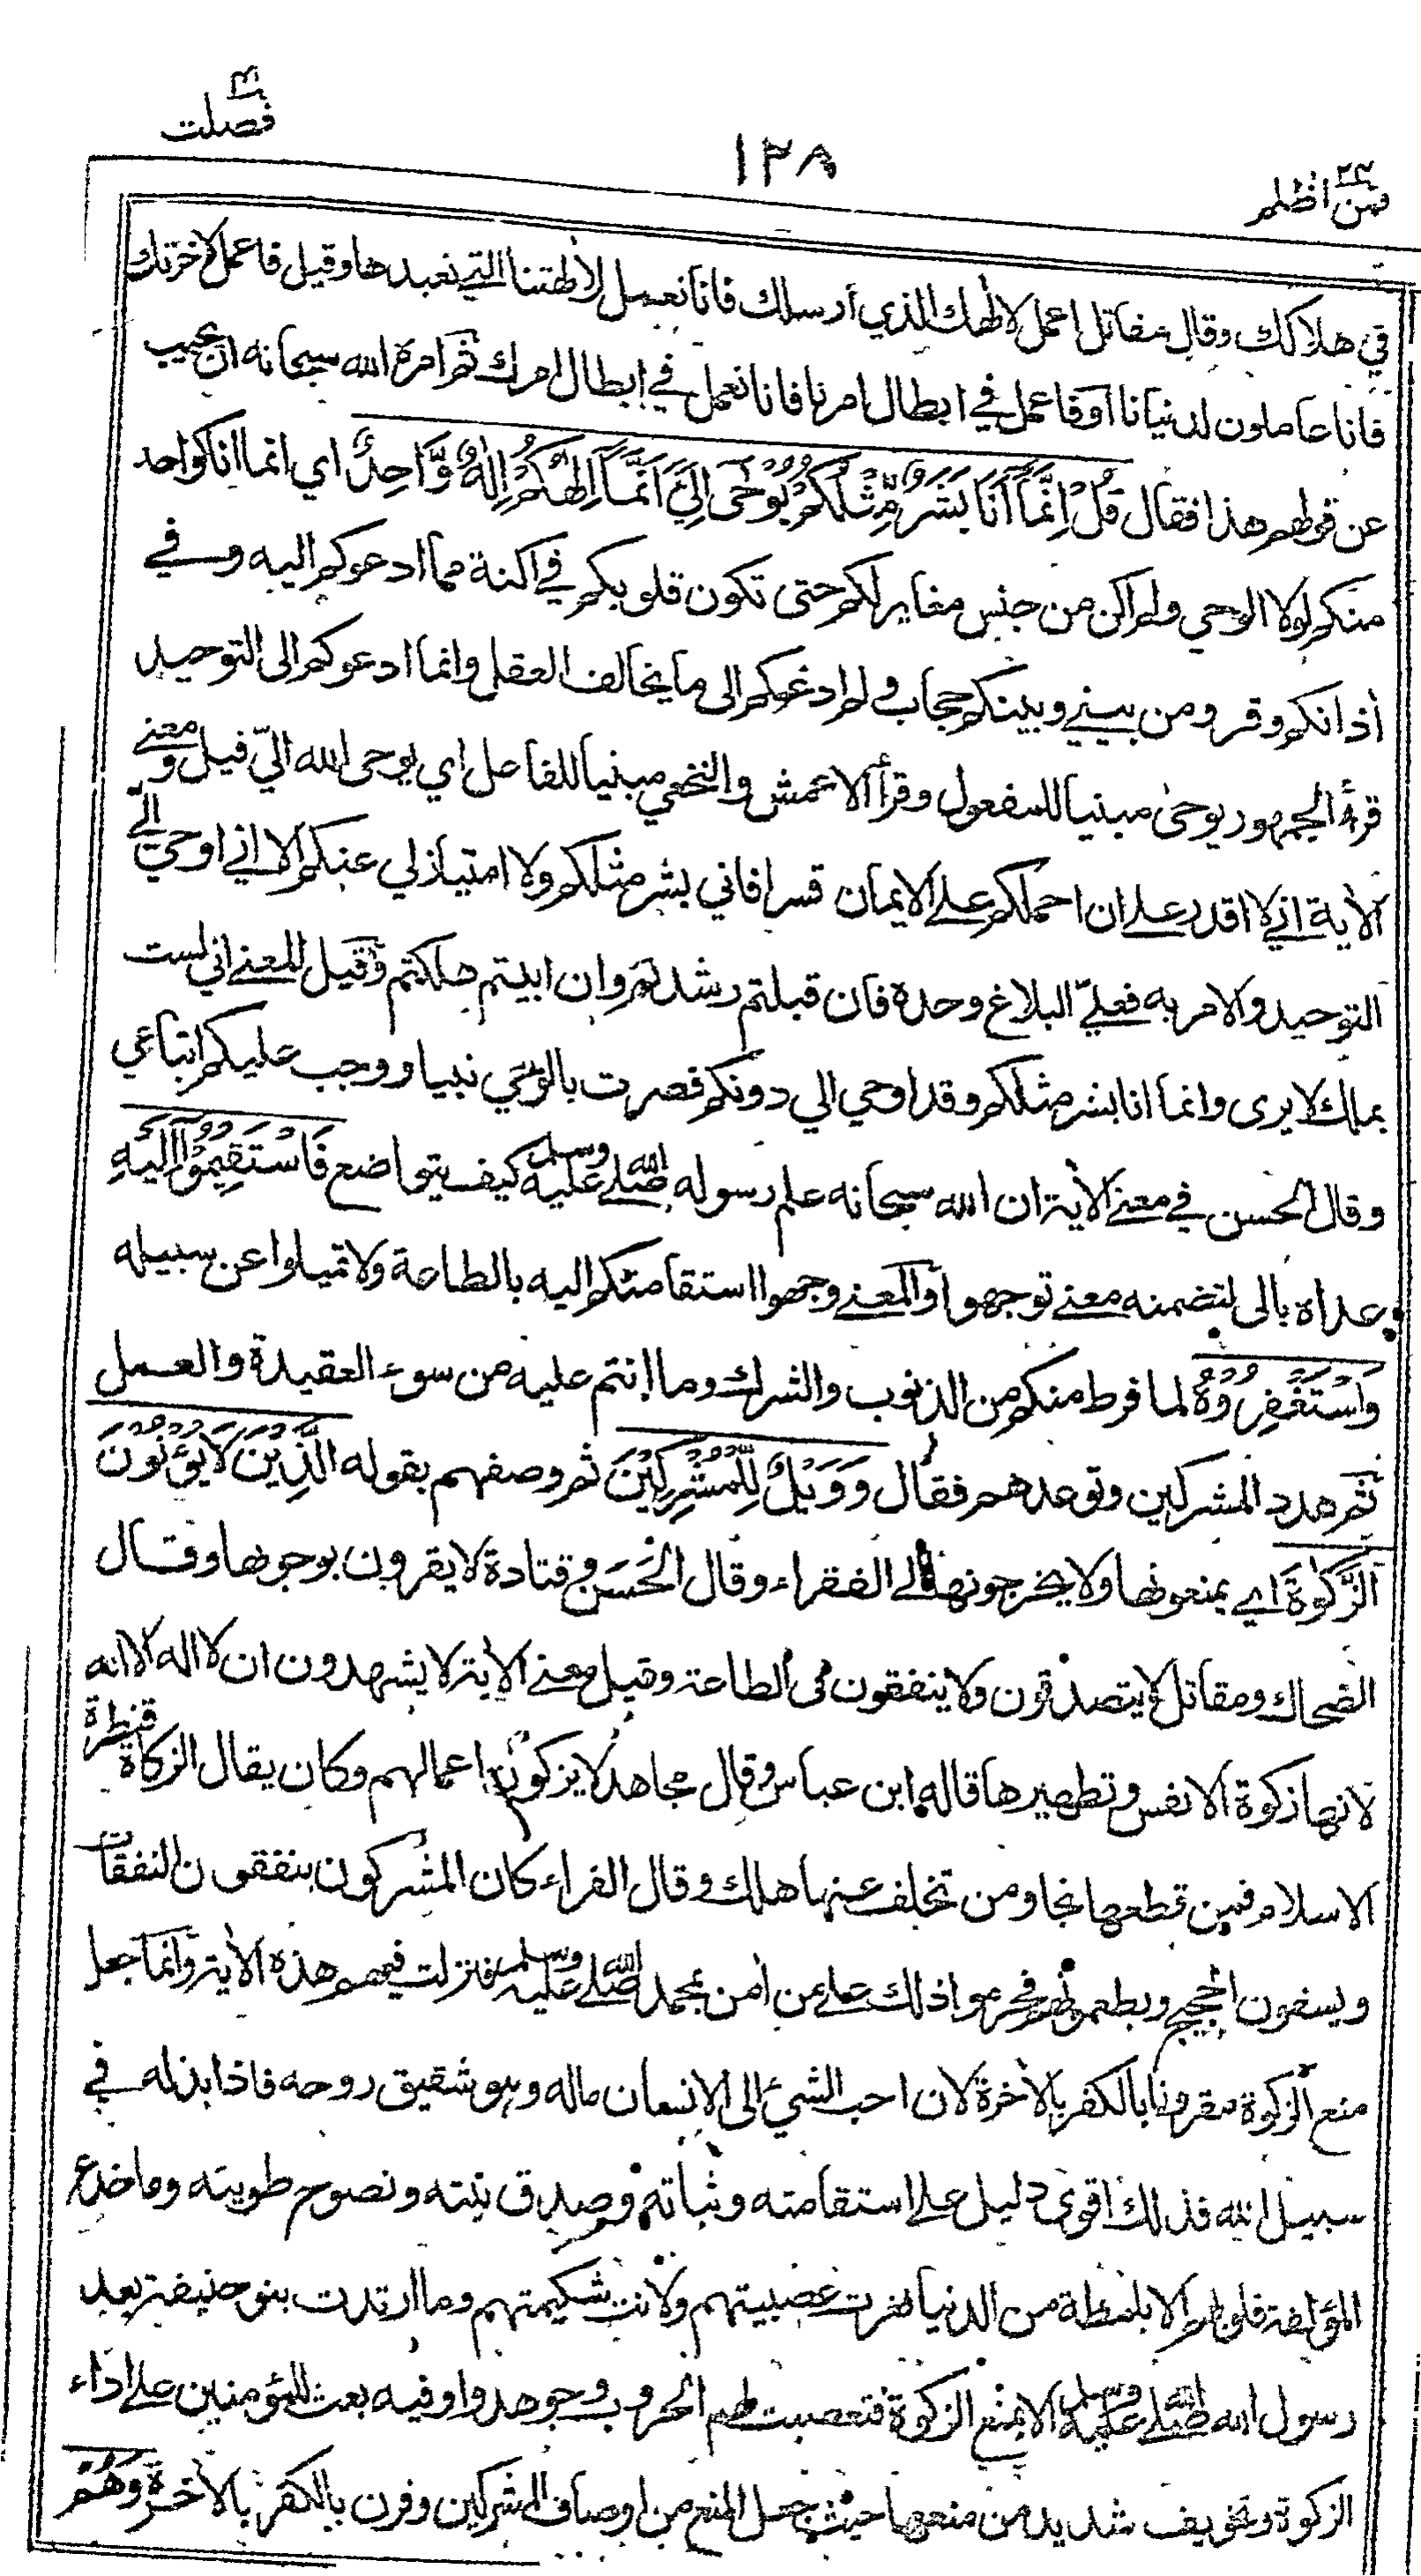 فصلت ٤١
١٢٨
فمن اظلم ٢٤
في هلاكك وقال مقاتل اعمل لالهك الذي أرسلك فانا نعمل لالهتنا التي نعبدها وقيل فاعمل لاخرتك
فانا عاملون لدنيانا او فاعمل في ابطال امرنا فانا نعمل في ابطال امرك ثم امره الله سبحانه ان يجيب
عن قولهم هذا فقال قُلْ اِنَّمَآ اَنَا بَشَرٌ مِّثْلُكُمْ يُوْحٰى اِلَيَّ اَنَّمَآ اِلٰهُكُمْ اِلٰهٌ وَّاحِدٌ اي انما انا كواحد
منكم لولا الوحي ولم اكن من جنس مغاير لكم حتى تكون قلوبكم في اكنة مما ادعوكم اليه وفي
أذانكم وقر ومن بيني وبينكم حجاب ولم ادعكم الى ما يخالف العقل وانما ادعوكم الى التوحيد
قرأ الجمهور يوحى مبنيا للمفعول وقرأ الاعمش والنخعي مبنيا للفاعل اي يوحى الله الىّ قيل ومعنى
الاية اني لا اقدر على ان احملكم على الايمان قسرا فاني بشر مثلكم ولا امتياز لي عنكم الا اني اوحي الىّ
التوحيد والامر به فعليّ البلاغ وحده فان قبلتم رشدتم وان ابيتم هلكتم وقيل المعنى اني لست
بملك لا يرى وانما انا بشر مثلكم وقد اوحي الي دونكم فصرت بالوحي نبيا ووجب عليكم اتباعي
وقال الحسن في معنى الاية ان الله سبحانه علم رسوله صلى الله عليه وسلم كيف يتواضع فَاسْتَقِيْمُوْٓا اِلَيْهِ
عداه بالى لتضمنه معنى توجهوا والمعنى وجهوا استقامتكم اليه بالطاعة ولا تميلوا عن سبيله
وَاسْتَغْفِرُوْهُ لما فرط منكم من الذنوب والشرك وما انتم عليه من سوء العقيدة والعمل
ثم هدد المشركين وتوعدهم فقال وَوَيْلٌ لِّلْمُشْرِكِيْنَ ثم وصفهم بقوله الَّذِيْنَ لَا يُؤْتُوْنَ
الزَّكٰوةَ اي يمنعونها ولا يخرجونها الى الفقراء وقال الحسن وقتادة لا يقرون بوجوبها وقال
الضحاك ومقاتل لا يتصدقون ولا ينفقون في الطاعة وقيل معنى الاية لا يشهدون ان لا اله الا الله
لانها زكوة الانفس وتطهيرها قاله ابن عباس وقال مجاهد لا يزكون اعمالهم وكان يقال الزكاة قنطرة
الاسلام فمن قطعها نجا ومن تخلف عنها هلك وقال الفراء كان المشركون ينفقون النفقات
ويسقون الحجيج ويطعمونهم فحرموا ذلك على من أمن بمحمد صلى الله عليه وسلم فنزلت فيهم هذه الاية وانما جعل
منع الزكوة مقرونا بالكفر بالأخرة لان احب الشيء الى الانسان ماله وهو شقيق روحه فاذا بذله في
سبيل الله فذلك اقوى دليل على استقامته وثباته وصدق نيته ونصوح طويته وما خدع
المؤلفة قلوبهم الا بلمظة من الدنيا فقرت عصبيتهم ولانت شكيمتهم وما ارتدت بنو حنيفة بعد
رسول الله صلى الله عليه وسلم الا بمنع الزكوة فتعصبت لهم الحروب وجوهدوا وفيه بعث للمؤمنين على اداء
الزكوة وتخويف شديد من منعها حيث جعل المنع من اوصاف المشركين وقرن بالكفر بالأخرة وَهُمْ